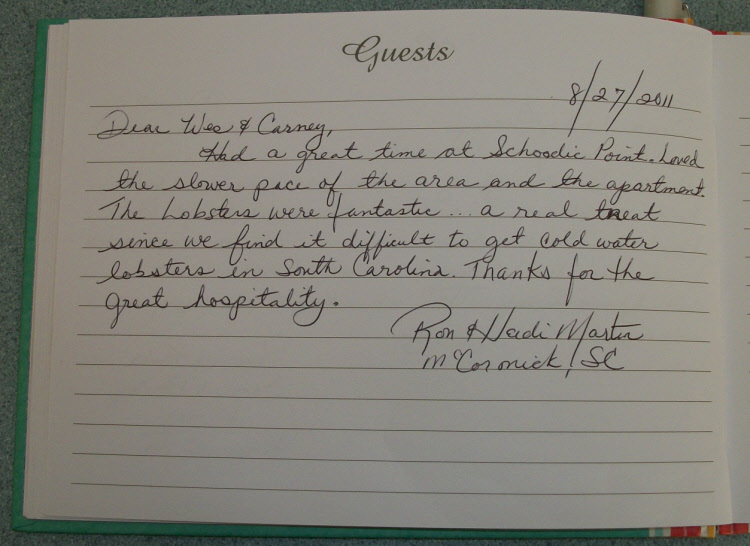 Guests
8/27/2011
Dear Wes & Carney,
Had a great time at Schoodic Point. Loved
the slower pace of the area and the apartment.
The Lobsters were fantastic... a real treat
since we find it difficult to get cold water
lobsters in South Carolina. Thanks for the
great hospitality.
Ron & Heidi Martin
McCormick, SC